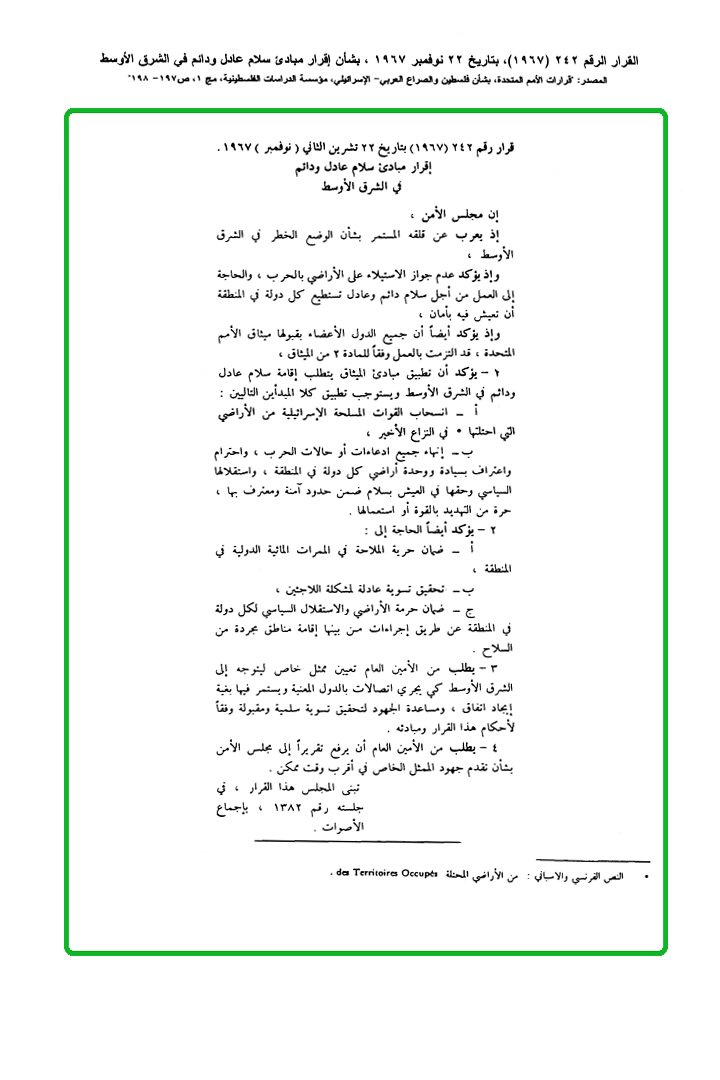 القرار الرقم ٢٤٢ (١٩٦٧)، بتاريخ ٢٢ نوفمبر ١٩٦٧ ، بشأن إقرار مبادئ سلام عادل ودائم في الشرق الأوسط
المصدر: "قرارات الأمم المتحدة، بشأن فلسطين والصراع العربي- الإسرائيلي، مؤسسة الدراسات الفلسطينية، مج ١، ص١٩٧- ١٩٨"
قرار رقم ٢٤٢ (١٩٦٧) بتاريخ ٢٢ تشرين الثاني ( نوفمبر ) ١٩٦٧ .
إقرار مبادئ سلام عادل ودائم
في الشرق الأوسط
إن مجلس الأمن ،
إذ يعرب عن قلقه المستمر بشأن الوضع الخطر في الشرق
الأوسط ،
وإذ يؤكد عدم جواز الاستيلاء على الأراضي بالحرب ، والحاجة
إلى العمل من أجل سلام دائم وعادل تستطيع كل دولة في المنطقة
أن تعيش فيه بأمان ،
وإذ يؤكد أيضاً أن جميع الدول الأعضاء بقبولها ميثاق الأمم
المتحدة ، قد التزمت بالعمل وفقاً للمادة ٢ من الميثاق ،
١ – يؤكد أن تطبيق مبادئ الميثاق يتطلب إقامة سلام عادل
ودائم في الشرق الأوسط ويستوجب تطبيق كلا المبدأين التاليين :
أ – انسحاب القوات المسلحة الإسرائيلية من الأراضي
التي احتلتها • في النزاع الأخير ،
ب – إنهاء جميع ادعاءات أو حالات الحرب ، واحترام
واعتراف بسيادة ووحدة أراضي كل دولة في المنطقة ، واستقلالها
السياسي وحقها في العيش بسلام ضمن حدود آمنة ومعترف بها ،
حرة من التهديد بالقوة أو استعمالها .
٢ – يؤكد أيضاً الحاجة إلى :
أ – ضمان حرية الملاحة في الممرات المائية الدولية في
المنطقة ،
ب – تحقيق تسوية عادلة لمشكلة اللاجئين ،
ج – ضمان حرمة الأراضي والاستقلال السياسي لكل دولة
في المنطقة عن طريق إجراءات من بينها إقامة مناطق مجردة من
السلاح .
٣ – يطلب من الأمين العام تعيين ممثل خاص ليتوجه إلى
الشرق الأوسط كي يجري اتصالات بالدول المعنية ويستمر فيها بغية
إيجاد اتفاق ، ومساعدة الجهود لتحقيق تسوية سلمية ومقبولة وفقاً
لأحكام هذا القرار ومبادئه .
٤ – يطلب من الأمين العام أن يرفع تقريراً إلى مجلس الأمن
بشأن تقدم جهود الممثل الخاص في أقرب وقت ممكن .
تبنى المجلس هذا القرار ، في
جلسته رقم ١٣٨٢ ، بإجماع
الأصوات .
• النص الفرنسي والاسباني : من الأراضي المحتلة des Territoires Occupés .